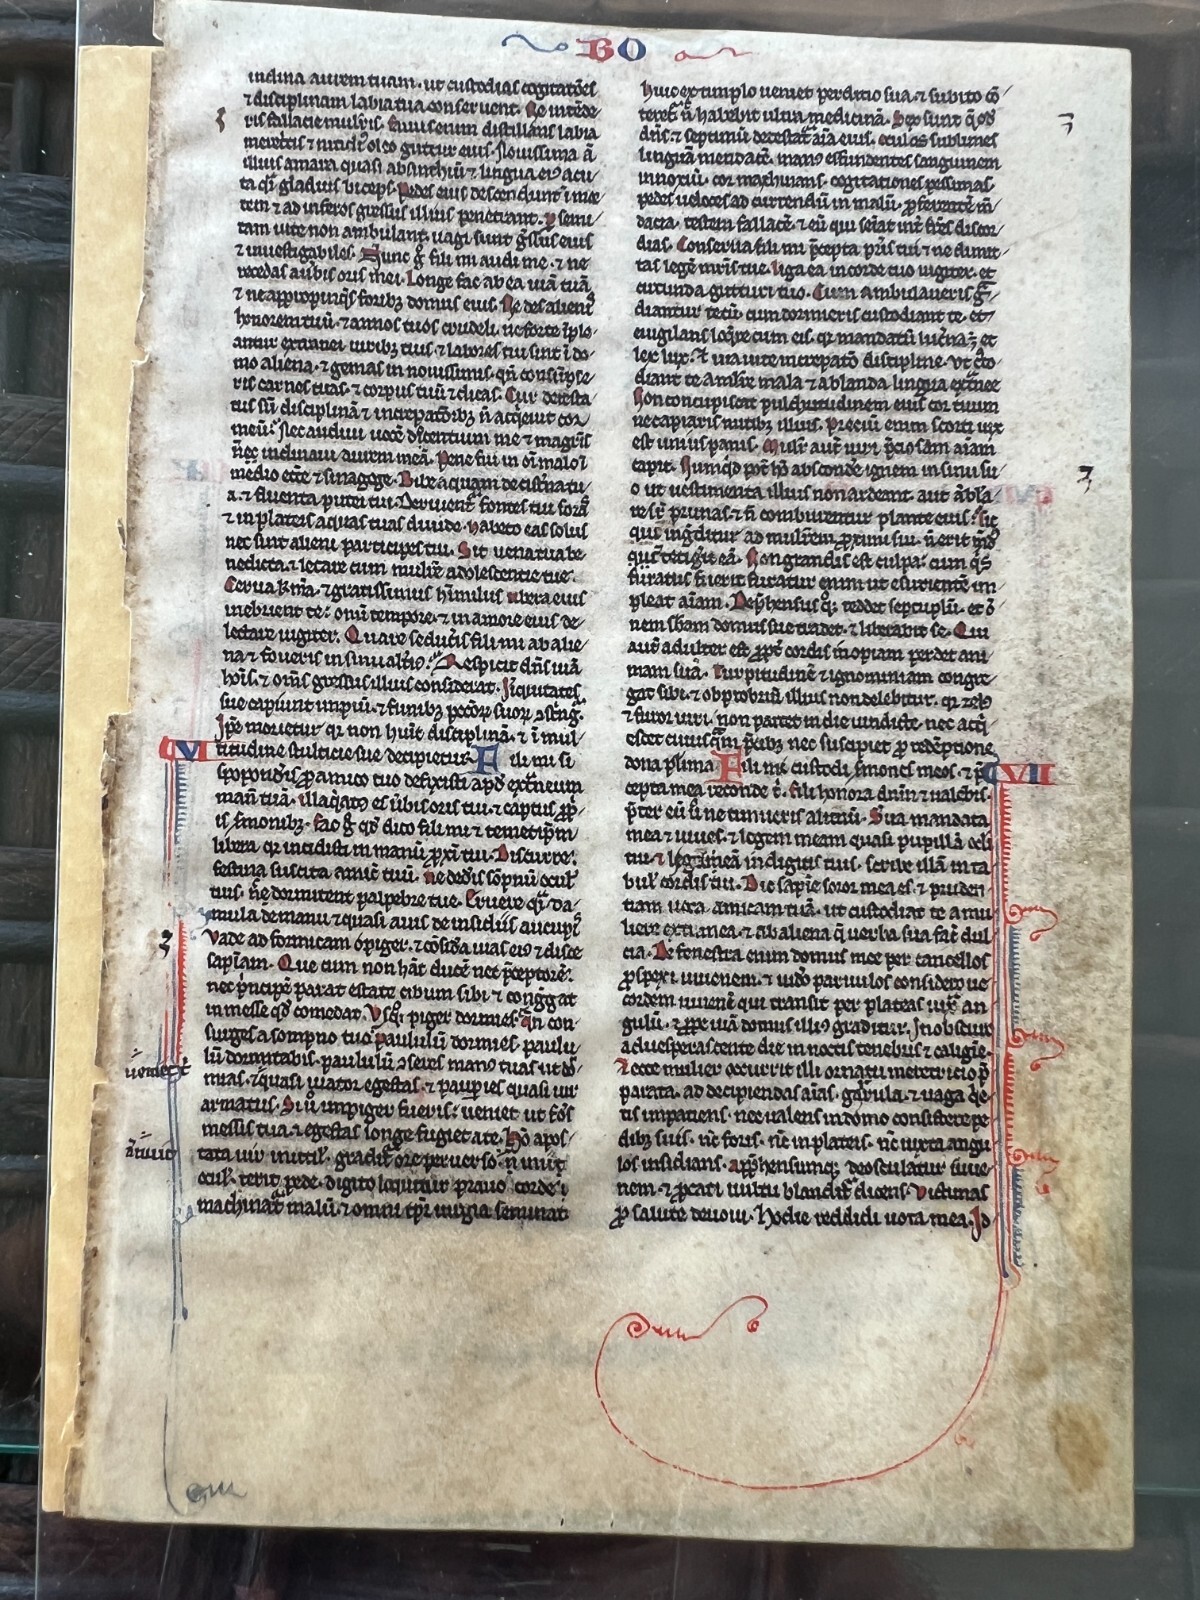 BO
indina aurem tuam. ut custodias cogitatões
⁊ disciplinam labia tua conseruent. Ne intēde
ris fallacie mulieris. fauus enim distillans labia
meretricis ⁊ nitidius oleo guttur eius. Nouissima aū
illius amara quasi absinthiū ⁊ lingua eius acu
ta q̄si gladius biceps. Pedes eius descendunt in mor
tem ⁊ ad inferos gressus illius penetrant. p semi
tam uite non ambulant. uagi sunt g̃ssus eius
⁊ inuestigabiles. Nunc g̊ fili mi audi me. ⁊ ne
recedas a ũbis oris mei. Longe fac ab ea uiā tuā
⁊ ne appropinq̃s foribꝫ domus eius. Ne des alienis
honorem tuū. ⁊ annos tuos crudeli. ne forte īplo
antur extranei uiribꝫ tuis. ⁊ labores tui sint ī do
mo aliena. ⁊ gemas in nouissimis. qn̄ consūpse
ris carnes tuas. ⁊ corpus tuū ⁊ dicas. Cur detesta
tus sū disciplinā ⁊ increpatōibꝫ n̄ acq̇euit cor
meū. Nec audiui uocē docentium me ⁊ magr̄is
n̄ec inclinaui aurem meā. Pene fui in oī malo ī
medio eccl̄e ⁊ sinagoge. Bibe aquam de cisterna tu
a. ⁊ fluenta putei tui. Deriuent̄ fontes tui foras
⁊ in plateis aquas tuas diuide. habeto eas solus
nec sint alieni participes tui. Sit uena tua be
nedicta. ⁊ letare cum muliere adolescentie tue.
Cerua kr̄ma. ⁊ gratissimus hinnulus ubera eius
inebrient te. omī tempore. ⁊ in amore eius de
lectare iugiter. Quare seduceris fili mi ab alie
na ⁊ foueris in sinu alti9. Respicit dn̄s uiā
hoīs. ⁊ om̄s gressus illius considerat. Iniquitates
sue capiunt impiū. ⁊ funibꝫ peccōꝝ suoꝝ ɔstring̃.
Ip̄e morietur qr non huit disciplinā. ⁊ ī mul
VI
titudine stulticie sue decipietur. Fili mi si
spoponderis ꝓ amico tuo defixisti apd̄ extraneum
manū tuā. illaq̃atus es ũbis oris tui. ⁊ captus ꝓp
is s̃monibꝫ. fac g̊ qd̄ dico fili mi ⁊ temetip̄m
libera qr incidisti in manū ꝓxī tui. Discurre.
festina suscita amicū tuū. ne dederis sōpnū ocul̄
tuis. ne dormitent palpebre tue. Eruere q̄si da
mula de manu ⁊ quasi auis de insidiis aucupis
Vade ad formicam o piger. ⁊ cōsid̃a uias ei9 ⁊ disce
sapīam. Que cum non hāt ducē nec p̃ceptorē.
nec p̃ncipē parat estate cibum sibi ⁊ congregat
in messe qd̄ comedat. Vsqꝫ piger dormies. q̃n con
surges a sompno tuo. paululū dormies paulu
lū dormitabis. paululū ɔseres man9 tuas ut dor
mias. ⁊ quasi uiator egestas. ⁊ paup̱ies quasi uir
armatus. Si ũ impiger fueris. ueniet ut fōs
messis tua. ⁊ egestas longe fugiet a te. Hō apos
tata uir inutil̄. gradit̄ ore peruerso. n̄ nuit
ocul̄. terit pede. digito loquitur prauo corde
machinat̄ malū. ⁊ omni tp̄r iurgia seminat
ueniet ei
huic extimplo ueniet perditio sua. ⁊ subito cō
teret̄ n̄ habebit ultra medicinā. Sex sunt q̄ odit
dn̄s. ⁊ septimū detestat̄ aīa eius. oculos sublimes
linguā mendacē. man9 effundentes sanguinem
innoxiū. cor machinans cogitationes pessimas.
pedes ueloces ad currendū in malū. ꝓferentē m̄
dacia. testem fallacē. ⁊ eū qui seīat int̄ fr̄es discor
dias. Conserua fili mi p̃cepta pr̄is tui ⁊ ne dimit
tas legē mr̄is tue. liga ea in corde tuo iugiter. et
circunda gutturi tuo. Cum ambulaueris g̃
diantur tecū. cum dormieris custodiant te. et
euigilans loq̃re cum eis. qr mandatū luc̃na ē. et
lex lux. ⁊ uia uite increpatō discipline. Vt c9to
diant te a mlr̄e mala ⁊ a blanda lingua ext̃nee
Non concupiscat pulchritudinem eius cor tuum
ne capiaris nutibꝫ illius. Preciū enim scorti uix
est unius panis. Mulr̄ aut̄ uiri p̃ciosam aīam
capit. Numqd̄ pot̄ hō abscondere ignem in sinu su
o ut uestimenta illius non ardeant. aut ābla
re sr̄ prunas. ⁊ n̄ comburentur plante eius. Sic
qui ing̃ditur ad mulīrem ꝓximi sui. n̄ erit mūd9
qūi tetigit eā. Non grandis est culpa. cum q̃s
furatus fuerit. furatur enim ut esurientē im
pleat aīam. Dep̃hensus qꝫ reddet septuplū. et ō
nem sbām domus sue tradet. ⁊ liberabit se. Qui
aut̄ adulter est ꝓpt̄ cordis inopiam perdet ani
mam suā. Turpitudinē ⁊ ignominiam congre
gat sibi. ⁊ obprobriū illius non delebitur. qr zel9
⁊ furor uiri. non parcet in die uindicte. nec acq̇
escet cuiusq̃m p̃cibꝫ nec suscipiet ꝓ redēptione
dona plīma
VII
Fili mi custodi s̃mones meos. ⁊ p̃
cepta mea reconde t̄. fili honora dn̄m ⁊ ualebis.
p̃ter eū ũ ne timueris alienū. Serua mandata
mea ⁊ uiues. ⁊ legem meam quasi pupillā ocli
tui. ⁊ liga eā in digitis tuis. scribe illā in ta
bul̄ cordis tui. Dic sapīe soror mea es. ⁊ pruden
tiam uoca amicam tuā. ut custodiat te a mu
liere extranea. ⁊ ab aliena q̄ uerba sua facit dul
cia. De fenestra enim domus mee per cancellos
ꝓspexi. iuuenem. ⁊ uideo paruulos considero ue
cordem iuuenē qui transit per plateas iux̄ an
gulū. ⁊ ꝓpe uiā domus illi9 graditur. In obscuro
aduesperascente die in noctis tenebris ⁊ caligīe.
⁊ ecce mulier occurrit illi ornatu meretricio p̃
parata. ad decipiendas aīas. garrula. ⁊ uaga q̇e
tis impatiens. nec ualens in domo consistere pe
dibꝫ suis. nc̄ foris. nc̄ in plateis. nc̄ iuxta angu
los insidians. app̃hensumqꝫ deosculatur iuue
nem. ⁊ ꝓcaci uultu blandit̄ dicens. Victimas
ꝓ salute deuoui. Hodie reddidi uota mea. Id